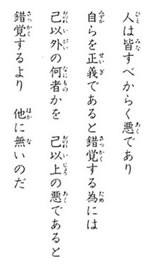 人は皆すべからく悪であり
自らを正義であると錯覚する為には
己以外の何者かを 己以上の悪であると
錯覚するより 他に無いのだ